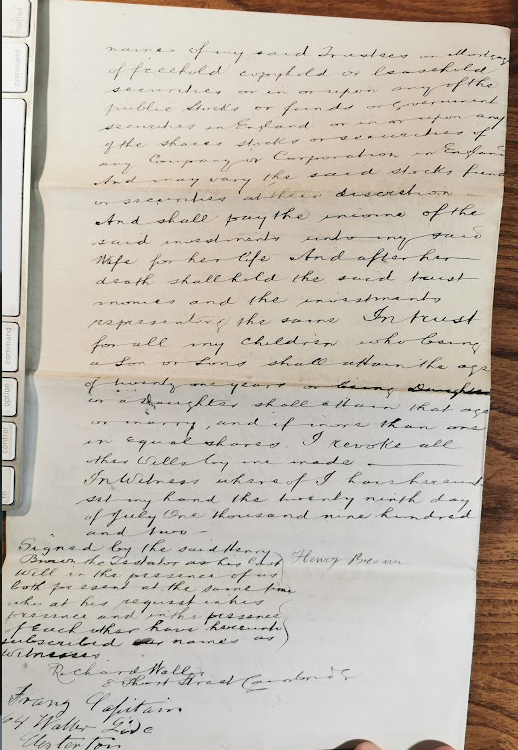 option
command
command
option
control
names of my said Trustees on Mortgage
of freehold copyhold or leasehold
securities or in or upon any of the
public Stocks or funds or government
securities in England or in or upon any
of the shares stocks or securities of
any Company or Corporation in England
And may vary the said stocks funds
or securities at their discretion
And shall pay the income of the
said investments unto my said
Wife for her life And after her
death shall hold the said trust
monies and the investments
representing the same In trust
for all my Children who being
a Son or Sons shall attain the age
of twenty one years or being Daughter
or a Daughter shall attain that age
or marry, and if more than one
in equal shares. I revoke all
other Wills by me made
In Witness whereof I have hereunto
set my hand the twenty ninth day
of July One thousand nine hundred
and two –
Signed by the said Henry
Brown the Testator as his last
Will in the presence of us
both present at the same time
who at his request in his
presence and in the presence
of each other have hereunto
subscribed our names as
Witnesses
Henry Brown
Richard Waller
Short Street
Walter